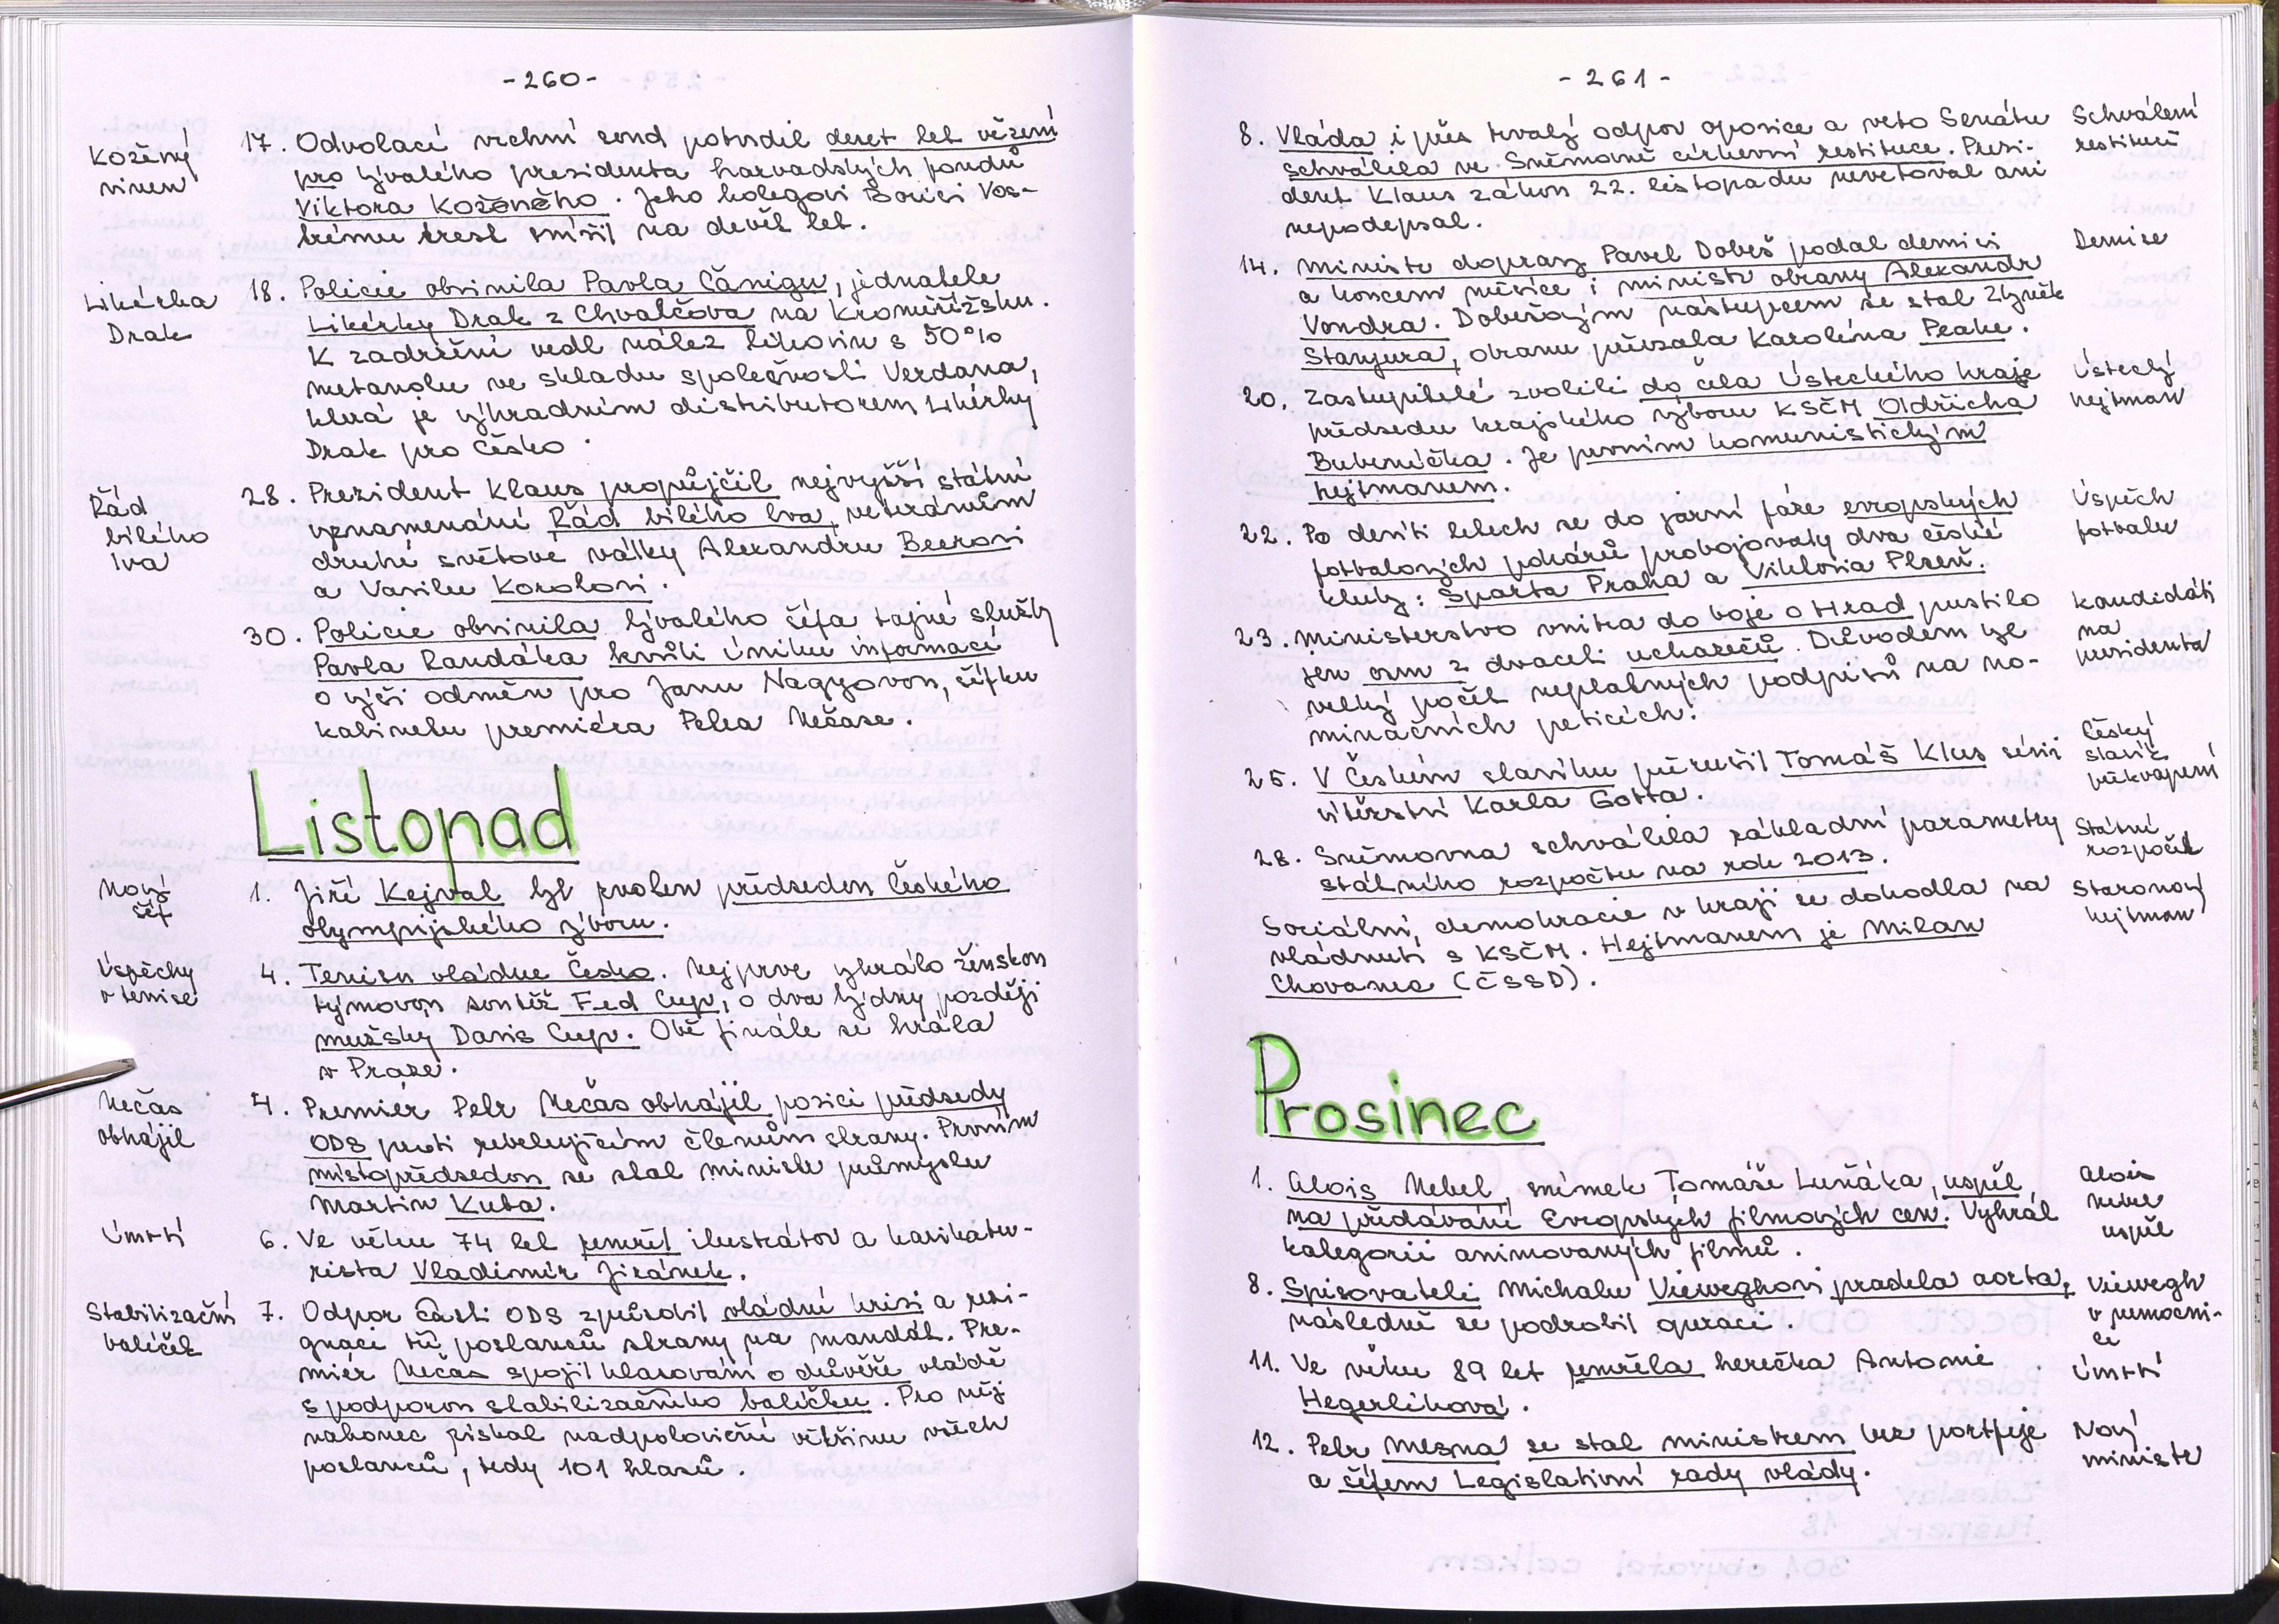 -260-
Kožený
vinen
17. Odvolací vrchní soud potvrdil deset let vězení
pro bývalého prezidenta harvadských fondů
Viktora Koženého. Jeho kolegovi Borisi Vos-
trému trest snížil na devět let.
Likérka
Drak
18. Policie obvinila Pavla Čánigu, jednatele
Likérky Drak z Chvalčova na Kroměřížsku.
K zadržení vedl nález lihovin s 50%
metanolu ve skladu společnosti Verdana,
která je výhradním distributorem Likérky
Drak pro Česko.
Řád
bílého
lva
28. Prezident Klaus propůjčil nejvyšší státní
vyznamenání Řád bílého lva veteránům
druhé světové války Alexandru Beerovi
a Vasilu Korolovi.
30. Policie obvinila bývalého šéfa tajné služby
Pavla Randáka kvůli úniku informací
o výši odměn pro Janu Nagyovou, šéfku
kabinetu premiéra Petra Nečase.
Listopad
Nový
šéf
1. Jiří Kejval byl zvolen předsedou Českého
olympijského výboru.
Úspěchy
v tenise
4. Tenisu vládne Česko. Nejprve vyhrálo ženskou
týmovou soutěž Fed Cup, o dva týdny později
mužský Davis Cup. Obě finále se hrála
v Praze.
Nečas
obhájil
4. Premiér Petr Nečas obhájil pozici předsedy
ODS proti rebelujícím členům strany. Prvním
místopředsedou se stal ministr průmyslu
Martin Kuba.
Úmrtí
6. Ve věku 74 let zemřel ilustrátor a karikatu-
rista Vladimír Jiránek.
Stabilizační
balíček
7. Odpor části ODS způsobil vládní krizi a rezi-
gnaci tří poslanců strany na mandát. Pre-
miér Nečas spojil hlasování o důvěře vládě
s podporou stabilizačního balíčku. Pro něj
nakonec získal nadpoloviční většinu všech
poslanců, tedy 101 hlasů.
-261-
8. Vláda i přes trvalý odpor oposice a veto Senátu
schválila ve Sněmovně církevní restituce. Prezi-
dent Klaus zákon 22. listopadu nevetoval ani
nepodepsal.
Schválení
restitucí
14. Ministr dopravy Pavel Dobeš podal demisi
a koncem měsíce i ministr obrany Alexandr
Vondra. Dobešovým nástupcem se stal Zbyněk
Stanjura, obranu převzala Karolína Peake.
Demise
20. Zastupitelé zvolili do čela Ústeckého kraje
předsedu krajského výboru KSČM Oldřicha
Bubeníčka. Je prvním komunistickým
hejtmanem.
Ústecký
hejtman
22. Po deseti letech se do jarní fáze evropských
fotbalových pohárů probojovaly dva české
kluby: Sparta Praha a Viktoria Plzeň.
Úspěch
fotbalu
23. Ministerstvo vnitra do boje o Hrad pustilo
jen osm z dvaceti uchazečů. Důvodem byl
velký počet neplatných podpisů na no-
minačních peticích.
Kandidáti
na
prezidenta
25. V Českém slavíku přerušil Tomáš Klus sérii
vítězství Karla Gotta.
Český
slavík
překvapení
28. Sněmovna schválila základní parametry
státního rozpočtu na rok 2013.
Státní
rozpočet
Sociální demokracie v kraji se dohodla na
vládnutí s KSČM. Hejtmanem je Milan
Chovanec (ČSSD).
Staronový
hejtman
Prosinec
1. Alois Nebel, snímek Tomáše Luňáka, uspěl
na předávání Evropských filmových cen. Vyhrál
kategorii animovaných filmů.
Alois
Nebel
uspěl
8. Spisovateli Michalu Vieweghovi praskla aorta,
následně se podrobil operaci.
Viewegh
v nemocni-
ci
11. Ve věku 89 let zemřela herečka Antonie
Hegerlíková.
Úmrtí
12. Petr Mlsna se stal ministrem bez portfeje
a šéfem Legislativní rady vlády.
Nový
ministr